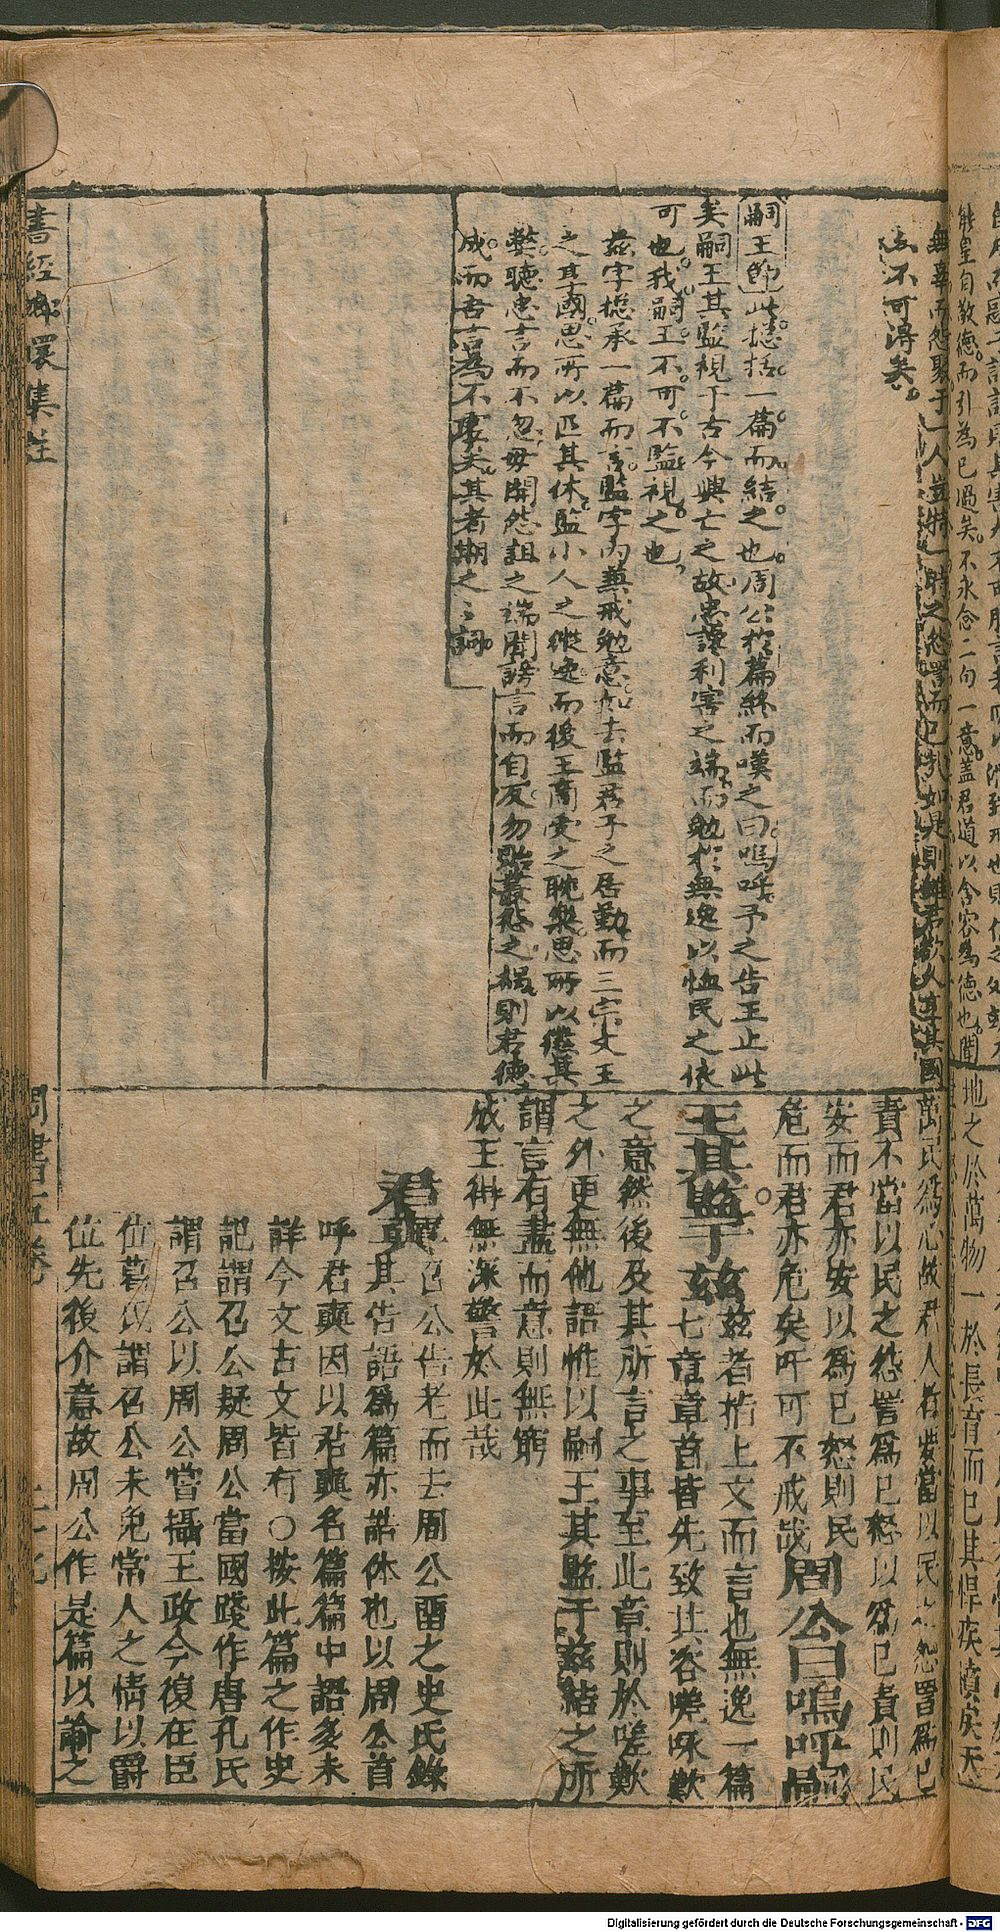 無辜而怨聚于一人豈特一時之怨詈而已哉如是則雖君欲人享其國
亦不可得矣
嗣王節此總括一篇而結之也周公於篇終而嘆之曰嗚呼予之告王止此
矣嗣王其監視于古今興亡之故忠讒利害之端而勉於無逸以恤民之依
可也我嗣王不可不監視之也
茲字總承一篇而言監字內兼戒勉意如去監君子之居勤而三宗文王
之享國思所以匹其休監小人之縱逸而後王商受之耽樂思所以懲其
弊聽忠言而不忽毋開怨詛之端聞謗言而自反勿貽叢愁之禍則君德
成而吾言為不虛矣其者期之之詞
萬民為心故君人者當以民之怨詈為己
責不當以民之怨詈為己怒以為己責則民
安而君亦安以為己怒則民
危而君亦危矣吁可不戒哉周公曰嗚呼嗣
王其監于茲茲者指上文而言也無逸一篇
七章章首皆先致其咨嗟咏歎
之意然後及其所言之事至此章則於嗟歎
之外更無他語惟以嗣王其監于茲結之所
謂言有盡而意則無窮
成王得無深警於此哉
君奭召公告老而去周公留之史氏錄
其告語為篇亦誥体也以周公首
呼君奭因以君奭名篇篇中語多未
詳今文古文皆有○按此篇之作史
記謂召公疑周公當國踐作唐孔氏
謂召公以周公嘗攝王政今復在臣
位葛氏謂召公未免常人之情以爵
位先後介意故周公作是篇以諭之
書經 集註
周書五卷
Digitalisierung gefördert durch die Deutsche Forschungsgemeinschaft - DFG